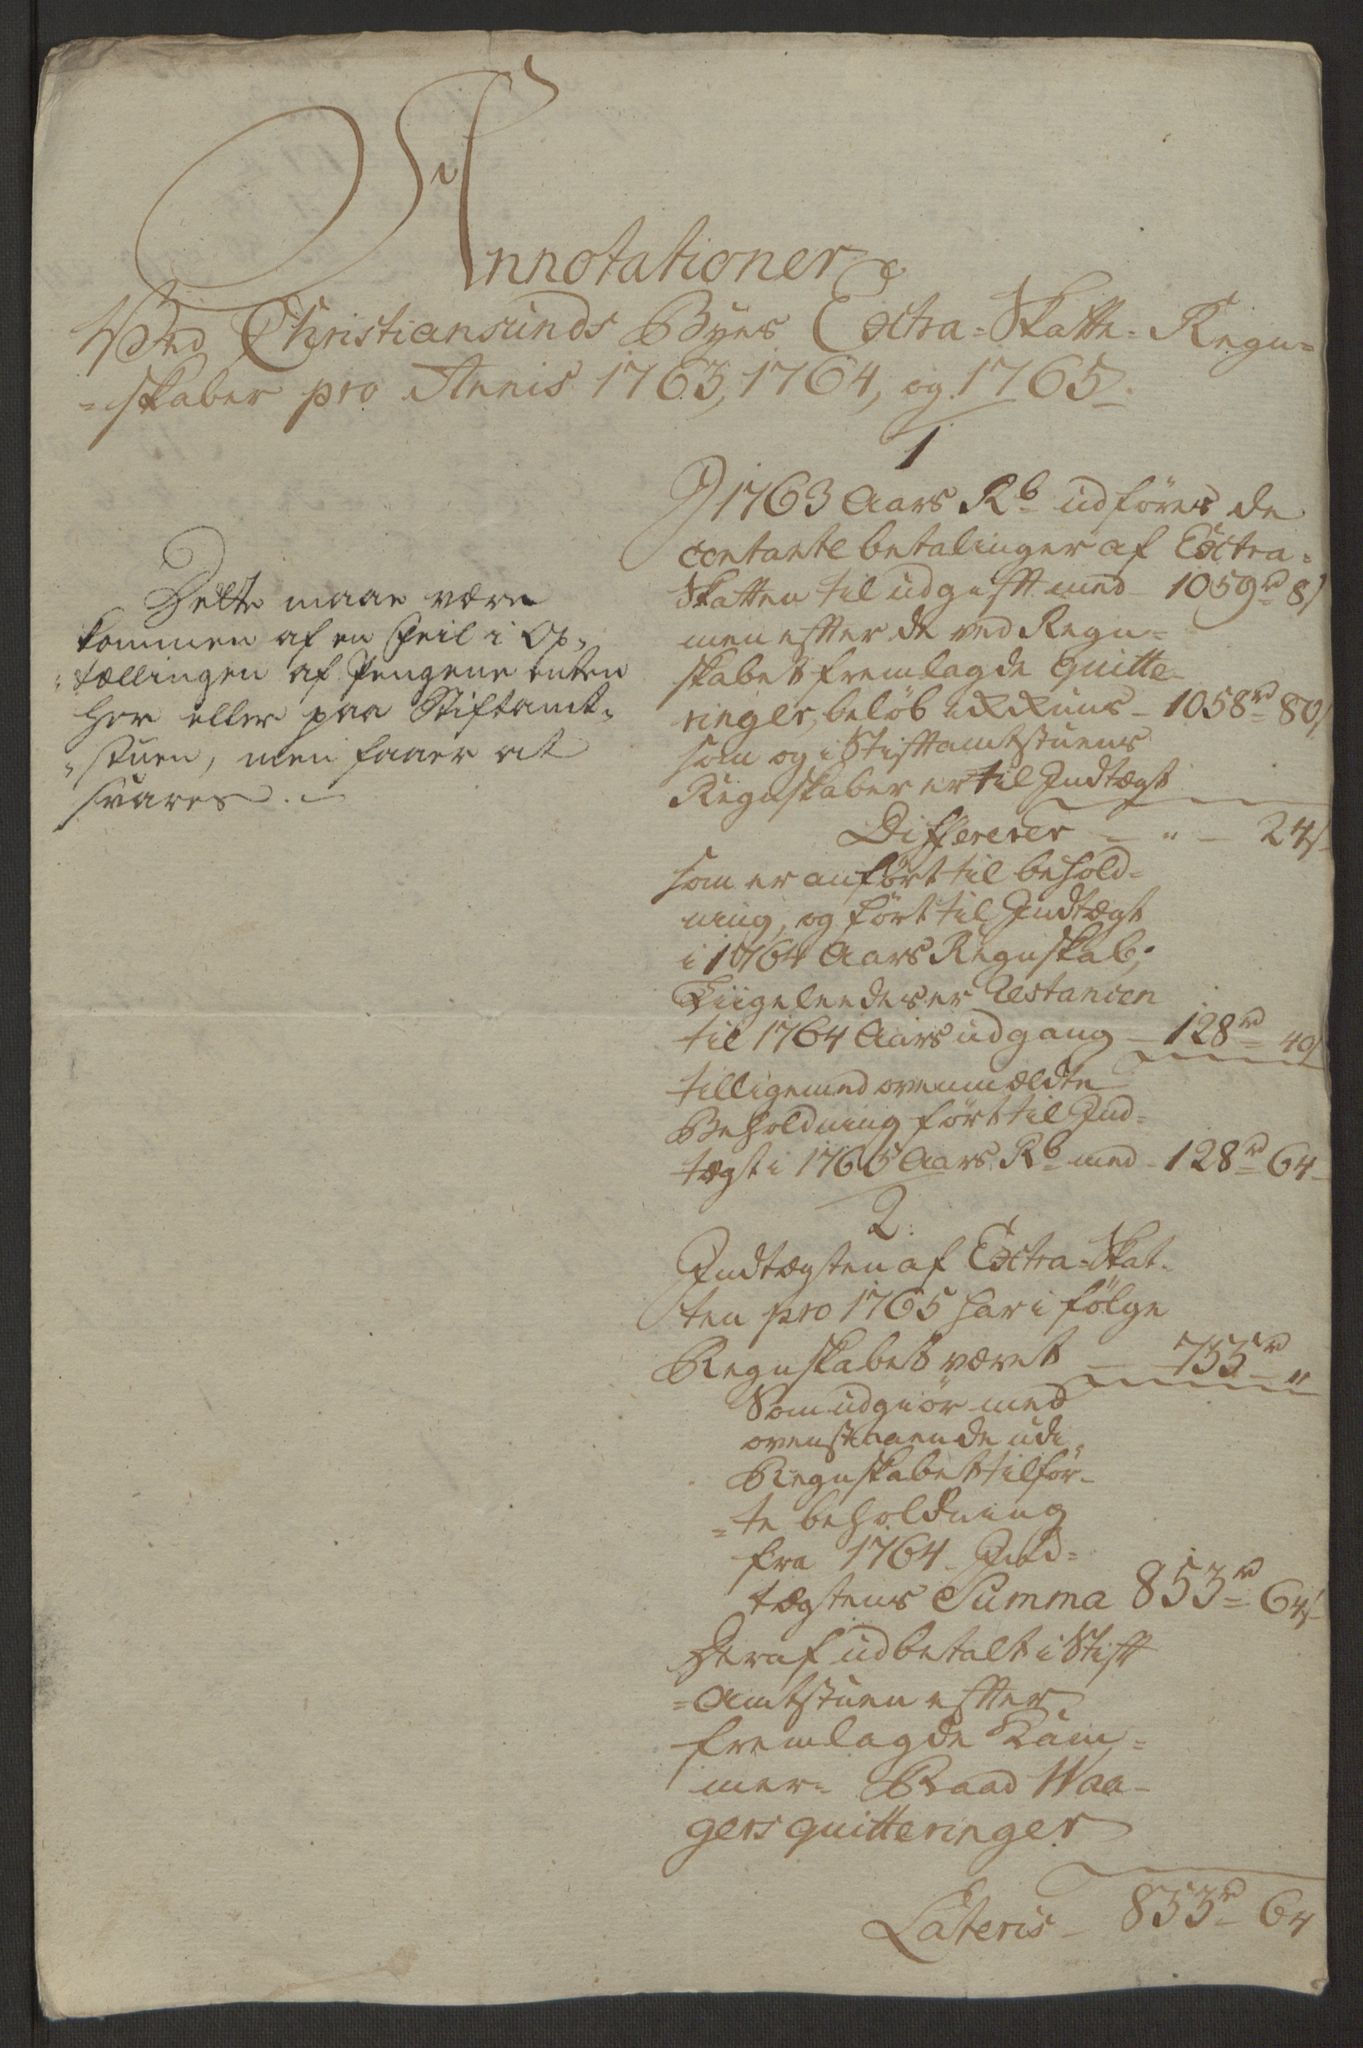 Annotationer
Ved Christiansunds Byes Extra-Skatte-Regn=
=skaber pro Annis 1763, 1764, og 1765.
1
I 1763 Aars Rb udføres de
contante betalinger af Extra=
Skatten til udgift med 1059rd 8s
men efter de ved Regn=
skabet fremlagde Quitte-
ringer, beløb - 1058rd 80s
som og i Stiftamtstuens
Regnskaber er til Indtægt
Differerer - " - 24s
som er anført til behold=
ning, og ført til Indtægt
i 1764 Aars Regnskab;
Liigeleedes er Restancen
til 1764 Aars udgang - 128rd 40s
tilligemed ovenmældte
Beholdning ført til Ind=
tægt i 1765 Aars Rb med - 128rd 64
Dette maae være
kommen af en Feil i Op=
=tællingen af Pengene enten
her eller paa Stiftamt=
=stuen, men faaer at
svares.
2.
Indtægten af Extra-Skat-
ten pro 1765 har i følge
Regnskabet været - 735rd "
Som udgiør med
ovenstaaende udi
Regnskabet tilfør-
=te beholdning
fra 1764 Ind=
tægtens Summa 853rd 64s
Deraf udbetalt i Stift
=Amtstuen efter
fremlagde Kam=
mer= Raad Waa-
gers quitteringer
Lateris - 853rd 64